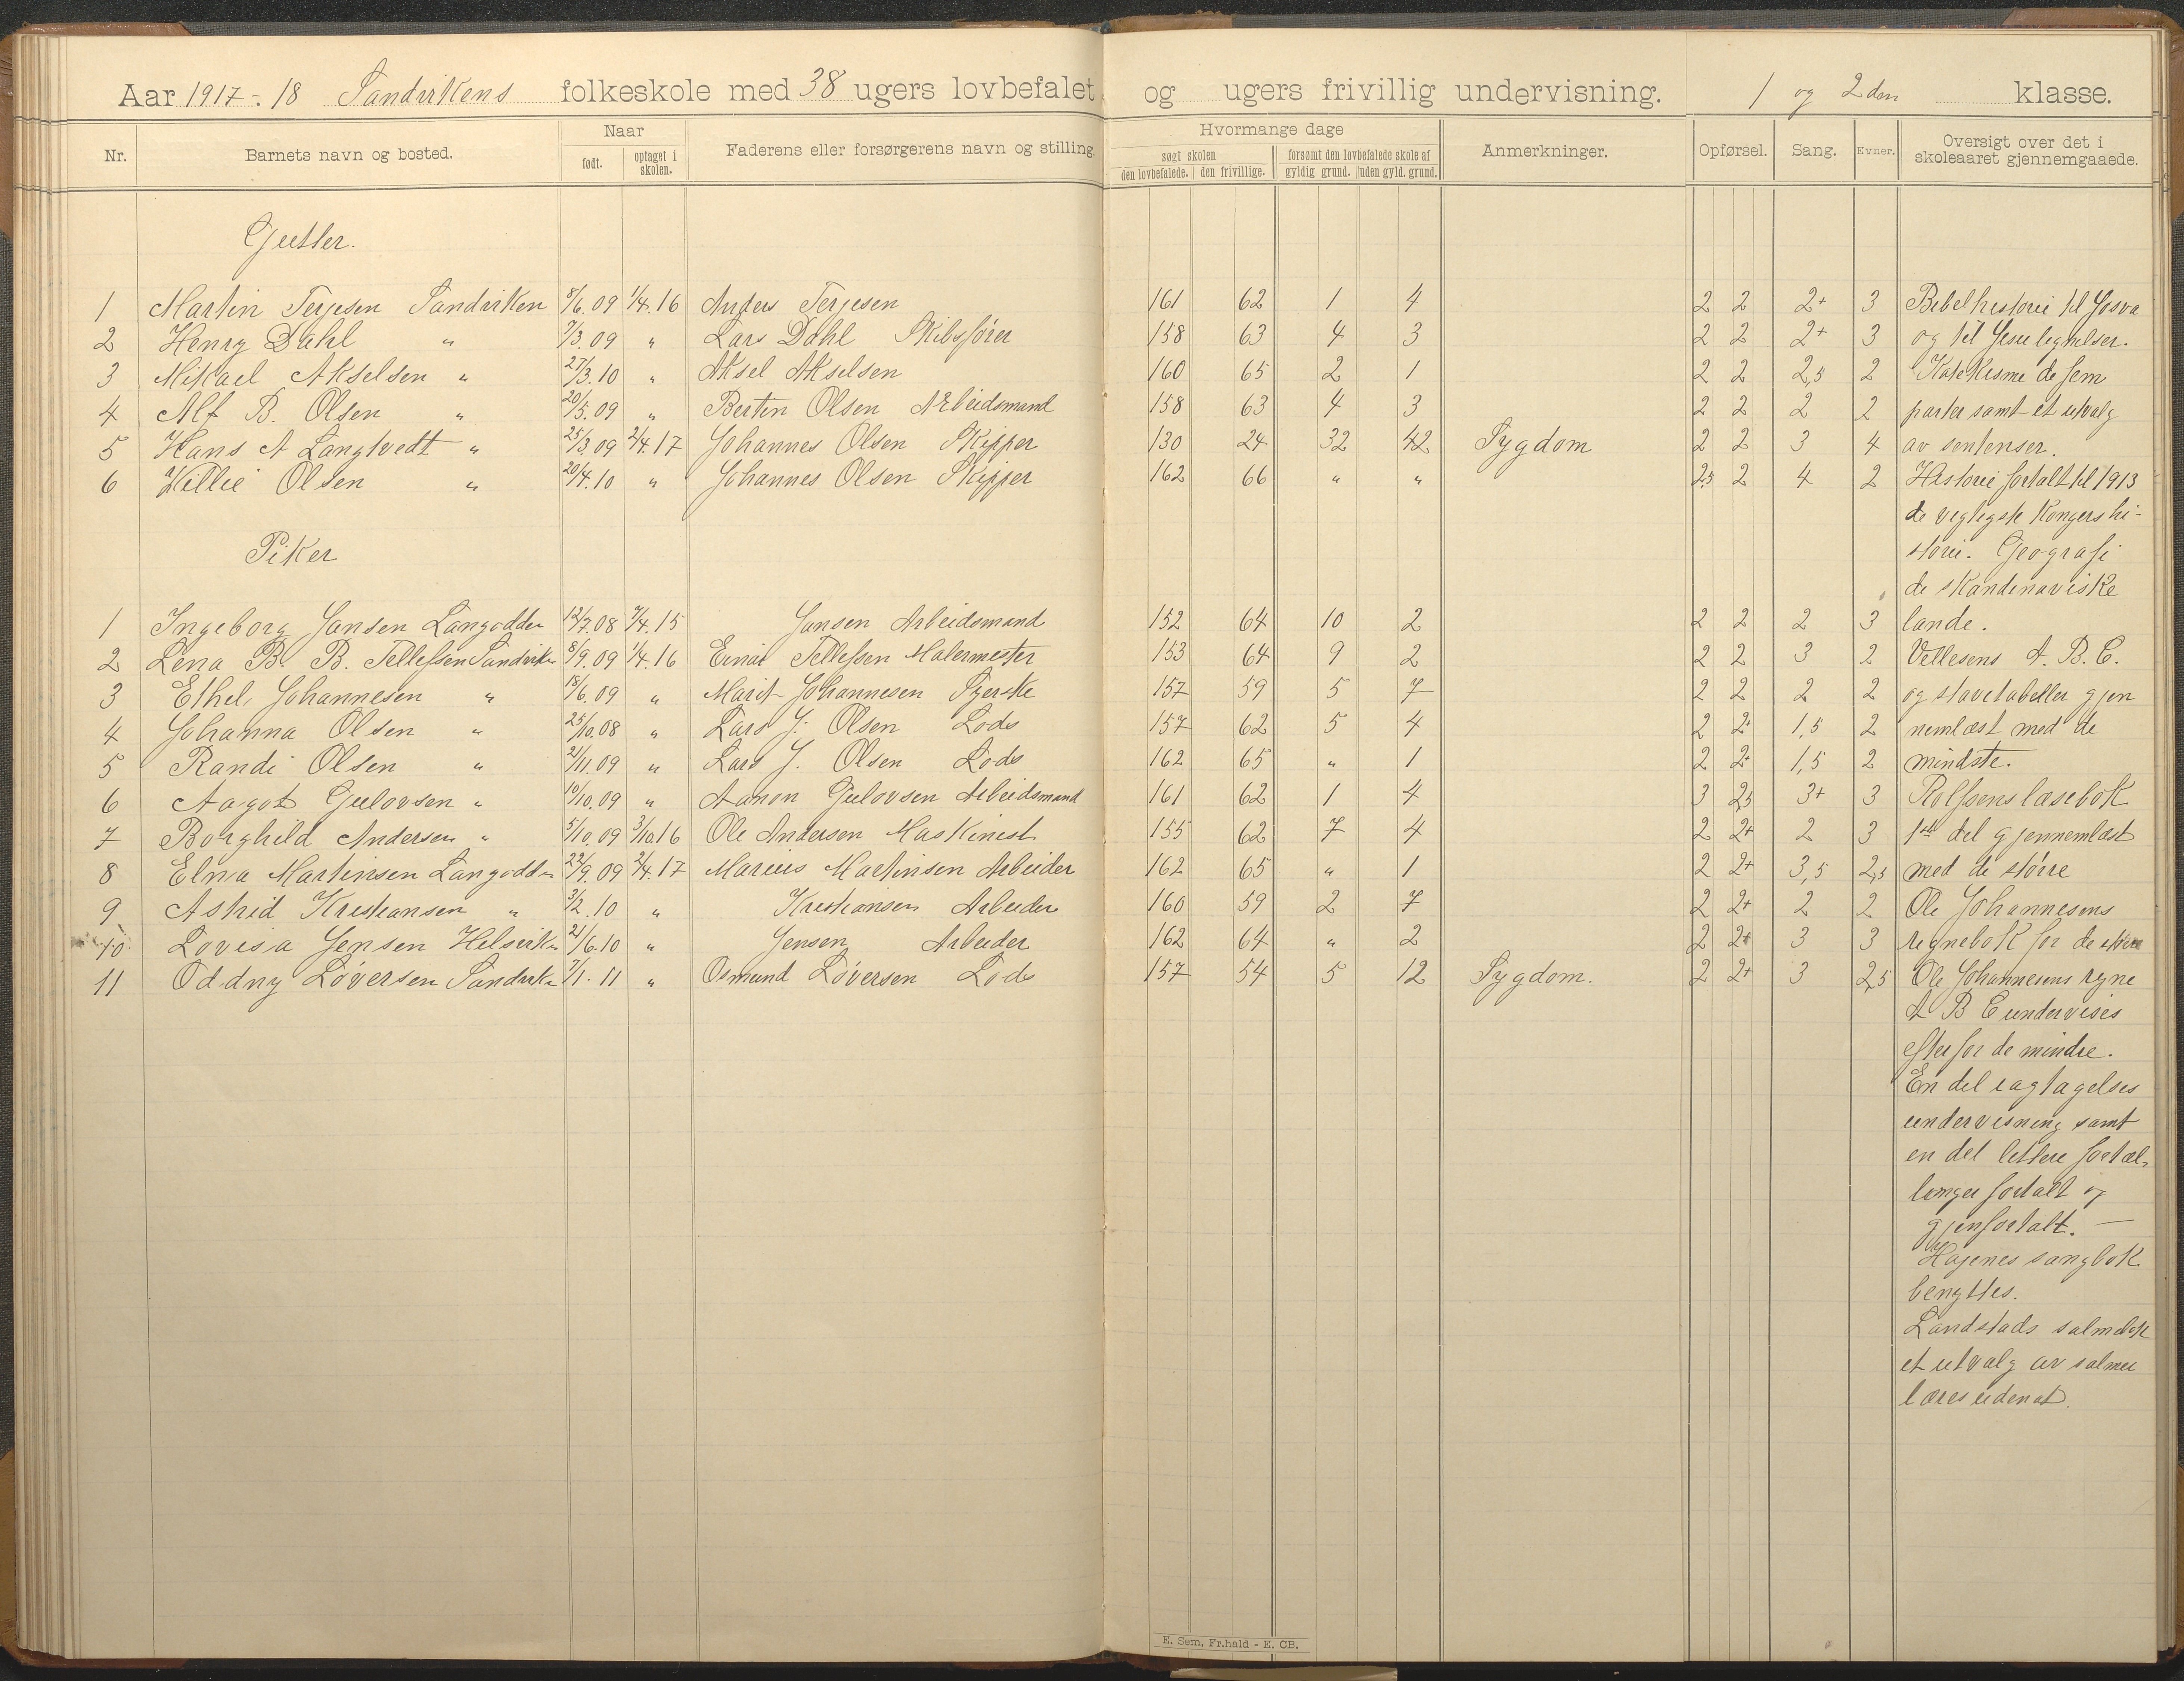 Aar 1917-18 Sandvikens folkeskole med 38 ugers lovbefalet og ugers frivillig undervisning. 1 og 2den klasse.
Nr. Barnets navn og bosted. Naar født. optaget i skolen. Faderens eller forsørgerens navn og stilling. Hvormange dage søgt skolen den lovbefalede. den frivillige. forsømt den lovbefalede skole af gyldig grund. uden gyld. grund. Anmerkninger. Opførsel. Sang. Evner. Oversigt over det i skoleaaret gjennemgaaede.
Gutter.
1 Martin Terjesen Sandviken 8/6.09 1/4.16 Anders Terjesen 161 62 1 4 2 2 2+ 3 Bibelhistorie til Josva
2 Henry Dahl " 7/3.09 " Lars Dahl Skibsfører 158 63 4 3 2 2 2+ 3 og til Jesu lignelser.
3 Mikael Akselsen " 27/3.10 " Aksel Akselsen 160 65 2 1 2 2 2,5 2 Katekisme de fem
4 Alf B. Olsen " 20/5.09 " Bertin Olsen Arbeidsmand 158 63 4 3 2 2 2 2 parter samt et utvalg
5 Hans A Langtvedt " 25/3.09 2/4.17 Johannes Olsen Skipper 130 24 32 42 Sygdom 2 2 3 4 av sentenser.
6 Willie Olsen " 20/4.10 " Johannes Olsen Skipper 162 66 " " 2,5 2 4 2 Historie fortalt til 1913
de vigtigste kongers hi-
Piker storie. Geografi
de skandinaviske
1 Ingeborg Jansen Langodden 12/7.08 7/4.15 Jansen Arbeidsmand 152 64 10 2 2 2 2 3 lande.
2 Lena B. B. Tellefsen Sandviken 8/9.09 1/4.16 Einar Tellefsen Malermester 153 64 9 2 2 2 3 2 Vellesens A. B. C.
3 Ethel Johannesen " 18/6.09 " Marit Johannesen Syerske 157 59 5 7 2 2 2 2 og stavetabeller gjen
4 Johanna Olsen " 25/10.08 " Lars J. Olsen Lods 157 62 5 4 2 2+ 1,5 2 nemlæst med de
5 Randi Olsen " 21/11.09 " Lars J. Olsen Lods 162 65 " 1 2 2+ 1,5 2 mindste.
6 Aagot Gulovsen " 10/10.09 " Aanon Gulovsen Arbeidsmand 161 62 1 4 3 2,5 3+ 3 Rolfsens læsebok
7 Borghild Andersen " 5/10.09 3/10.16 Ole Andersen Maskinist 155 62 7 4 2 2+ 2 3 1ste del gjennemlæst
8 Elna Martinsen Langodden 22/9.09 2/4.17 Marius Martinsen Arbeider 162 65 " 1 2 2+ 3,5 2,5 med de større
9 Astrid Kristiansen " 3/2.10 " Kristiansen Arbeider 160 59 2 7 2 2+ 2 2 Ole Johannesens
10 Lovisa Jensen Helsviken 21/6.10 " Jensen Arbeider 162 64 " 2 2 2+ 3 3 regnebok for de større
11 Oddny Løversen Sandviken 7/1.11 " Osmund Løversen Lods 157 54 5 12 Sygdom. 2 2+ 3 2,5 Ole Johannesens regne
A B C undervises
efter for de mindre.
En del iagtagelses
undervisning samt
en del lettere fortæl-
linger fortalt og
gjenfortalt. —
Hagenes sangbok
benyttes.
Landstads salmebok
et utvalg av salmer
læres udenat.
E. Sem, Fr.hald - E. CB.